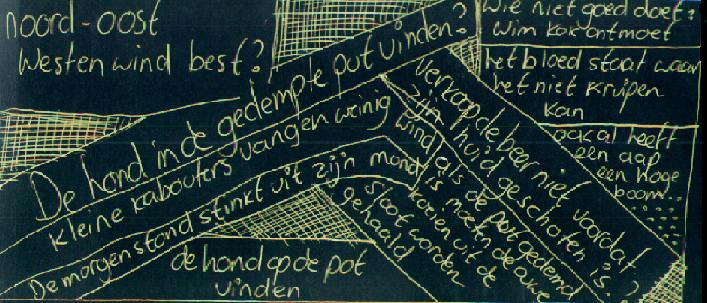 noord-oost
Westen wind best?
De hond in de gedempte put vinden?
kleine kabouters vangen weinig wind
De morgenstond stinkt uit zijn mond
de hond op de pot
vinden
Wie niet goed doet?
Wim Kan ontmoet
het bloed staat waar
het niet kruipen
kan
ook al heeft
een aap
een hoge
boom..
Verkoop de beer niet voordat
zijn huid geschoten is.
als de put gedempt
is moeten de
koeien uit de
sloot worden
gehaald
?